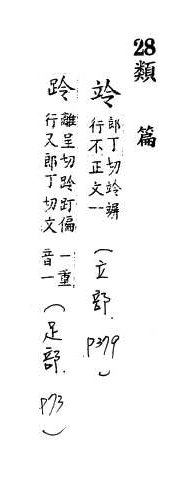 28類篇
竛 郎丁切竛竮
行不正文一
(立部. p379)
跉 離呈切跉䟓偏
行又郎丁切文
一重
音一
(足部. p73)